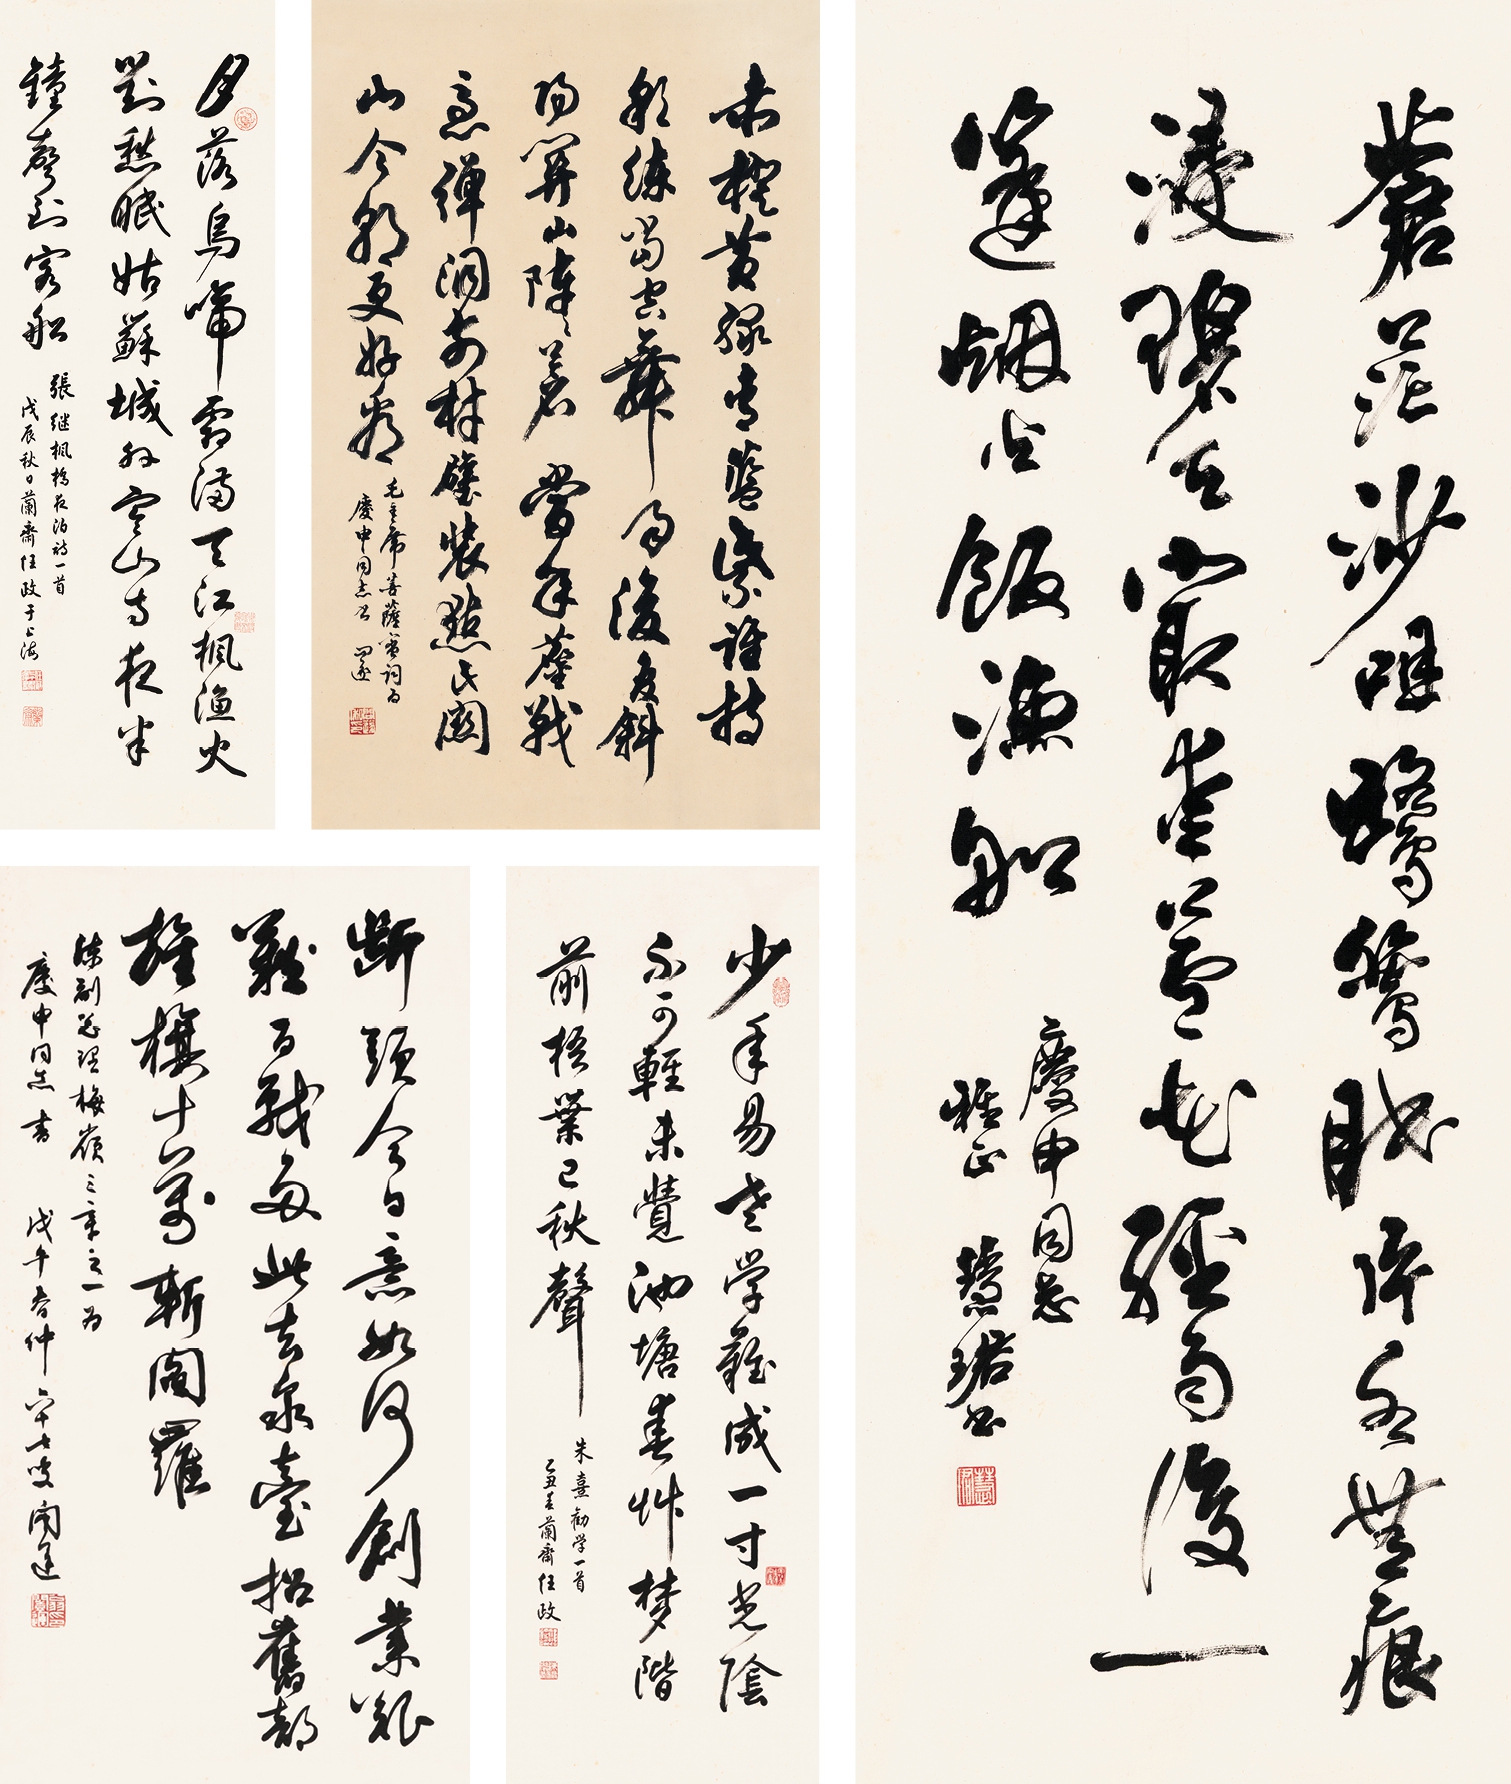 月落烏啼霜滿天江楓漁火
對愁眠姑蘇城外寒山寺夜半
鐘聲到客船
張继楓橋夜泊诗一首
戊辰秋日蘭齋任政于上海
赤橙黄緑青藍紫誰持
彩练當空舞雨後复斜
陽関山陣〻蒼當年鏖戰
急弹洞前村壁装點此關
山今朝更好看
毛主席菩薩蛮词为
慶申同志书
蒼茫沙咀鷺鷥眠片水無痕
浸碧天最愛蘆花經雨後一
篷烟火飯漁船
慶申同志
雅正
慧珺书
斷頭今日意如何創業艱
難百戰多此去泉臺招舊部
旌旗十萬斬閻羅
陈副总理梅嶺三章之一为
慶申同志书
戊午春仲
少年易老学難成一寸光陰
不可輕未覺池塘春艸梦階
前梧葉已秋聲
朱熹勸学一首
乙丑春蘭齋任政